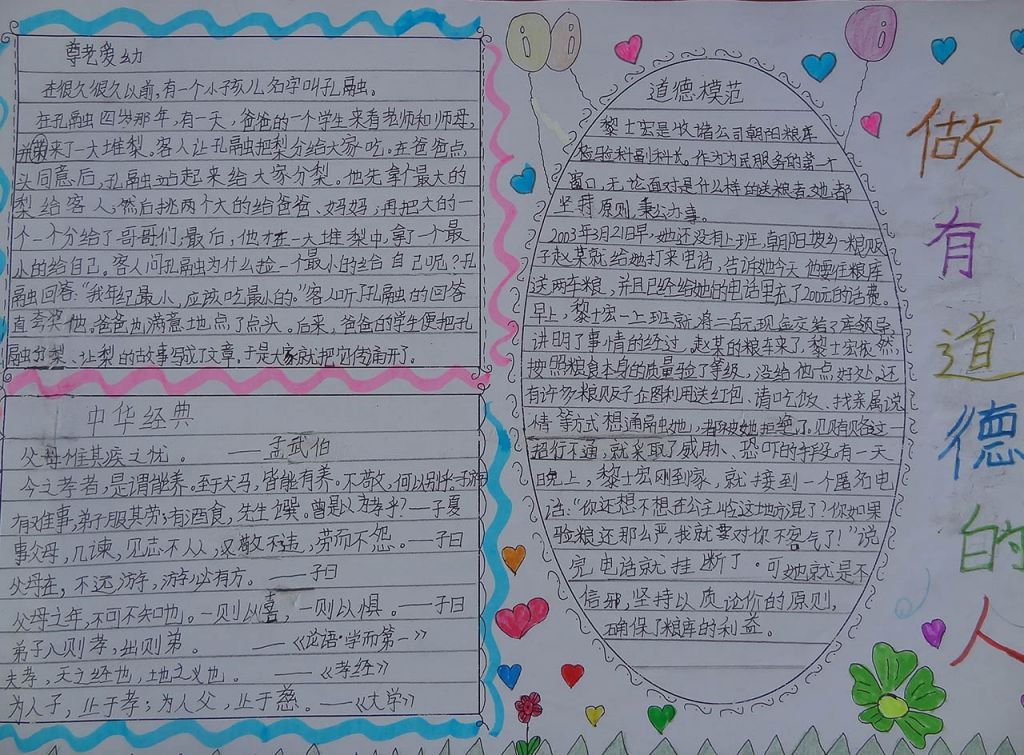 尊老爱幼
在很久很久以前,有一个小孩儿名字叫孔融。
在孔融四岁那年,有一天,爸爸的一个学生来看老师和师母,
并带来了一大堆梨。客人让孔融把梨分给大家吃。在爸爸点
头同意后,孔融站起来给大家分梨。他先拿个最大的
梨给客人;然后挑两个大的给爸爸、妈妈;再把大的一
个一个分给了哥哥们;最后,他才在一大堆梨中,拿了一个最
小的给自己。客人问孔融为什么捡一个最小的给自己呢?孔
融回答:“我年纪最小,应该吃最小的。”客人听了孔融的回答
直夸奖他。爸爸也满意地点了点头。后来,爸爸的学生便把孔
融分梨、让梨的故事写成了文章,于是大家就把它传诵开了。
中华经典
父母惟其疾之忧。——孟武伯
今之孝者,是谓能养。至于犬马,皆能有养。不敬,何以别乎
有难事,弟子服其劳;有酒食,先生馔。曾是以为孝乎?—子夏
事父母,几谏,见志不从,又敬不违,劳而不怨。——子曰
父母在,不远游,游必有方。——子曰
父母之年,不可不知也。一则以喜,一则以惧。——子曰
弟子入则孝,出则弟。——《论语·学而第一》
夫孝,天之经也,地之义也。——《孝经》
为人子,止于孝;为人父,止于慈。——《大学》
道德模范
黎士宏是收储公司朝阳粮库
检验科副科长。作为为民服务的第一
窗口,无论面对是什么样的送粮者,她都
坚持原则,秉公办事。
2003年3月21日早,她还没有上班,朝阳坡乡一粮贩
子赵某就给她打来电话,告诉她今天他要往粮库
送两车粮,并且已经给她的电话里充了200元的话费。
早上,黎士宏一上班就将二百元现金交给了库领导,
讲明了事情的经过。赵某的粮车来了,黎士宏依然
按照粮食本身的质量验了等级,没给他一点好处。还
有许多粮贩子企图利用送红包、请吃饭、找亲属说
情等方式想通融她,都被她拒绝了。见贿赂这一
招行不通,就采取了威胁、恐吓的手段。有一天
晚上,黎士宏刚到家,就接到一个匿名电
话:“你还想不想在公主岭这地方混了?你如果
验粮还那么严,我就要对你不客气了!”说
完电话就挂断了。可她就是不
信邪,坚持以质论价的原则,
确保了粮库的利益。
做有道德的人